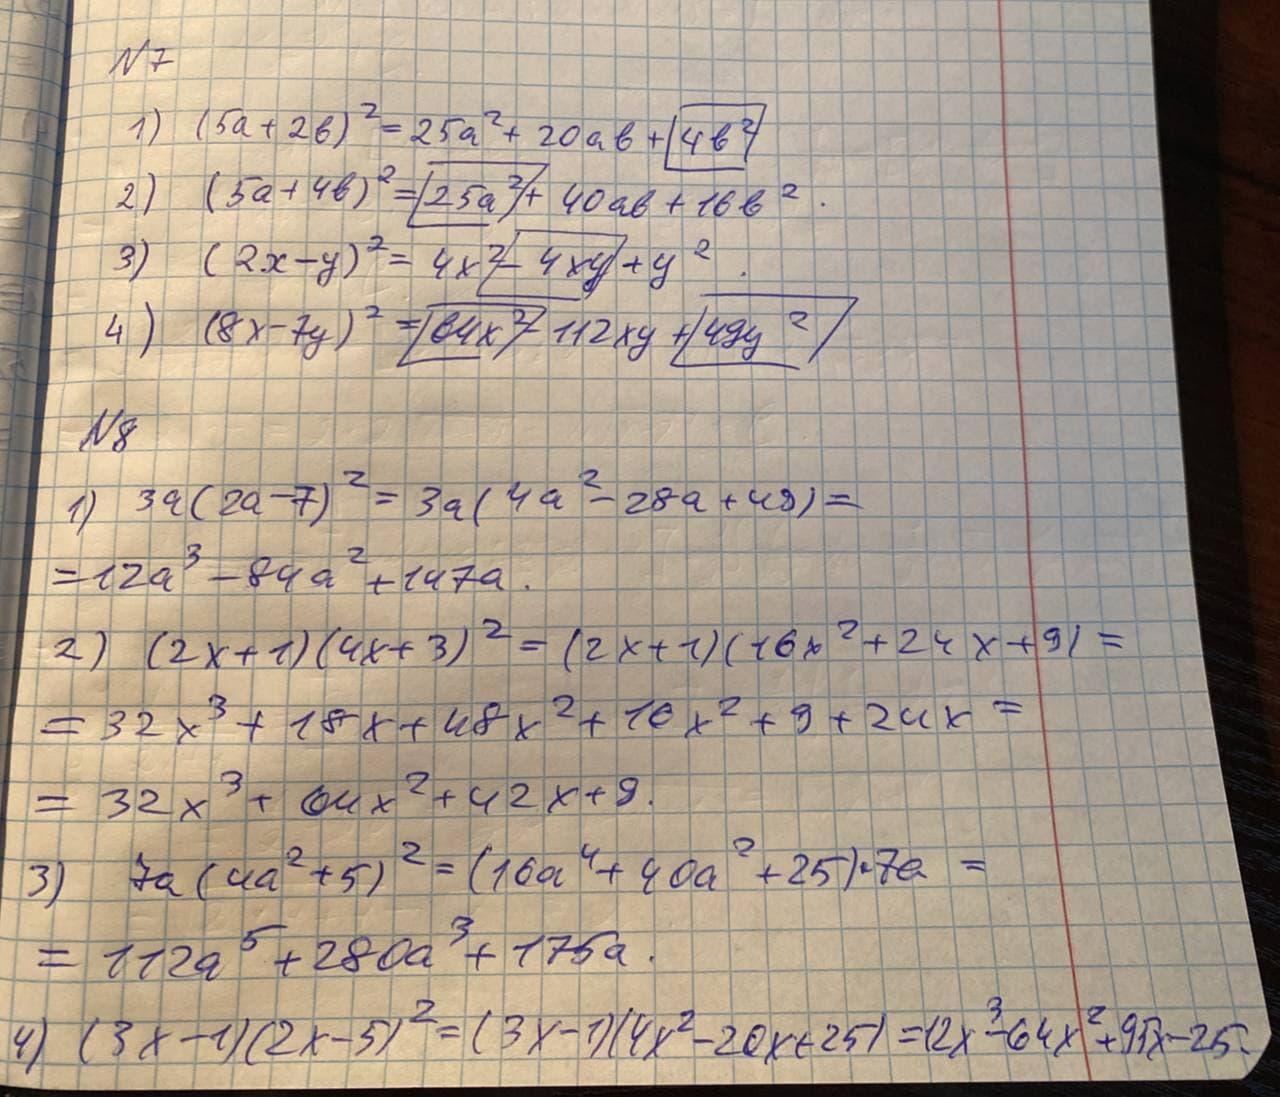 N7
1) (5a+2b)²=25a²+20ab+4b²
2) (5a+4b)²=25a²+40ab+16b².
3) (2x-y)²=4x²-4xy+y².
4) (8x-7y)²=64x²-112xy+49y²
N8
1) 3a(2a-7)²=3a(4a²-28a+49)=
=12a³-84a²+147a.
2) (2x+1)(4x+3)²=(2x+1)(16x²+24x+9)=
=32x³+18x+48x²+16x²+9+24x=
=32x³+64x²+42x+9.
3) 7a(4a²+5)²=(16a⁴+40a²+25)·7a=
=112a⁵+280a³+175a.
4) (3x-1)(2x-5)²=(3x-1)(4x²-20x+25)=12x³-64x²+95x-25.